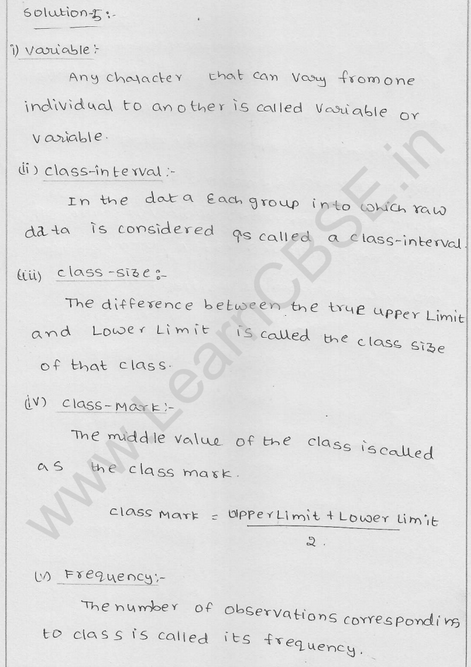 Solution-5:-
i) Variable:-
Any character that can vary from one
individual to another is called variable or
variable.
(ii) class-interval:-
In the data Each group into which raw
data is considered as called a class-interval.
(iii) class-size:-
The difference between the true upper Limit
and Lower Limit is called the class size
of that class.
(iv) class-Mark:-
The middle value of the class is called
as the class mark.
class Mark = Upper Limit + Lower Limit
2.
(v) Frequency:-
The number of observations corresponding
to class is called its frequency.
www.LearnCBSE.in